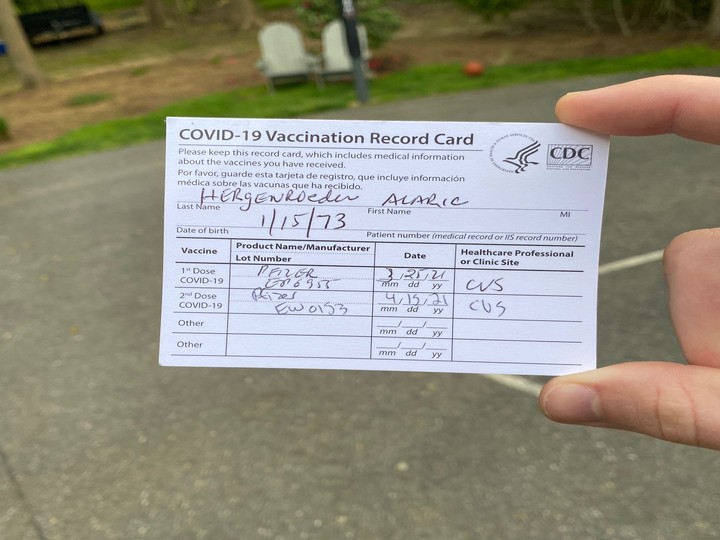 COVID-19 Vaccination Record Card
CDC
Please keep this record card, which includes medical information
about the vaccines you have received.
Por favor, guarde esta tarjeta de registro, que incluye información
médica sobre las vacunas que ha recibido.
HERgENROEDER ALARIC
Last Name First Name MI
1/15/73
Date of birth Patient number (medical record or IIS record number)
Vaccine Product Name/Manufacturer Date Healthcare Professional
Lot Number or Clinic Site
1st Dose PFIZER 3/25/21 CVS
COVID-19 mm dd yy
2nd Dose Pfizer 4/15/21 CVS
COVID-19 EW0153 mm dd yy
Other
mm dd yy
Other
mm dd yy